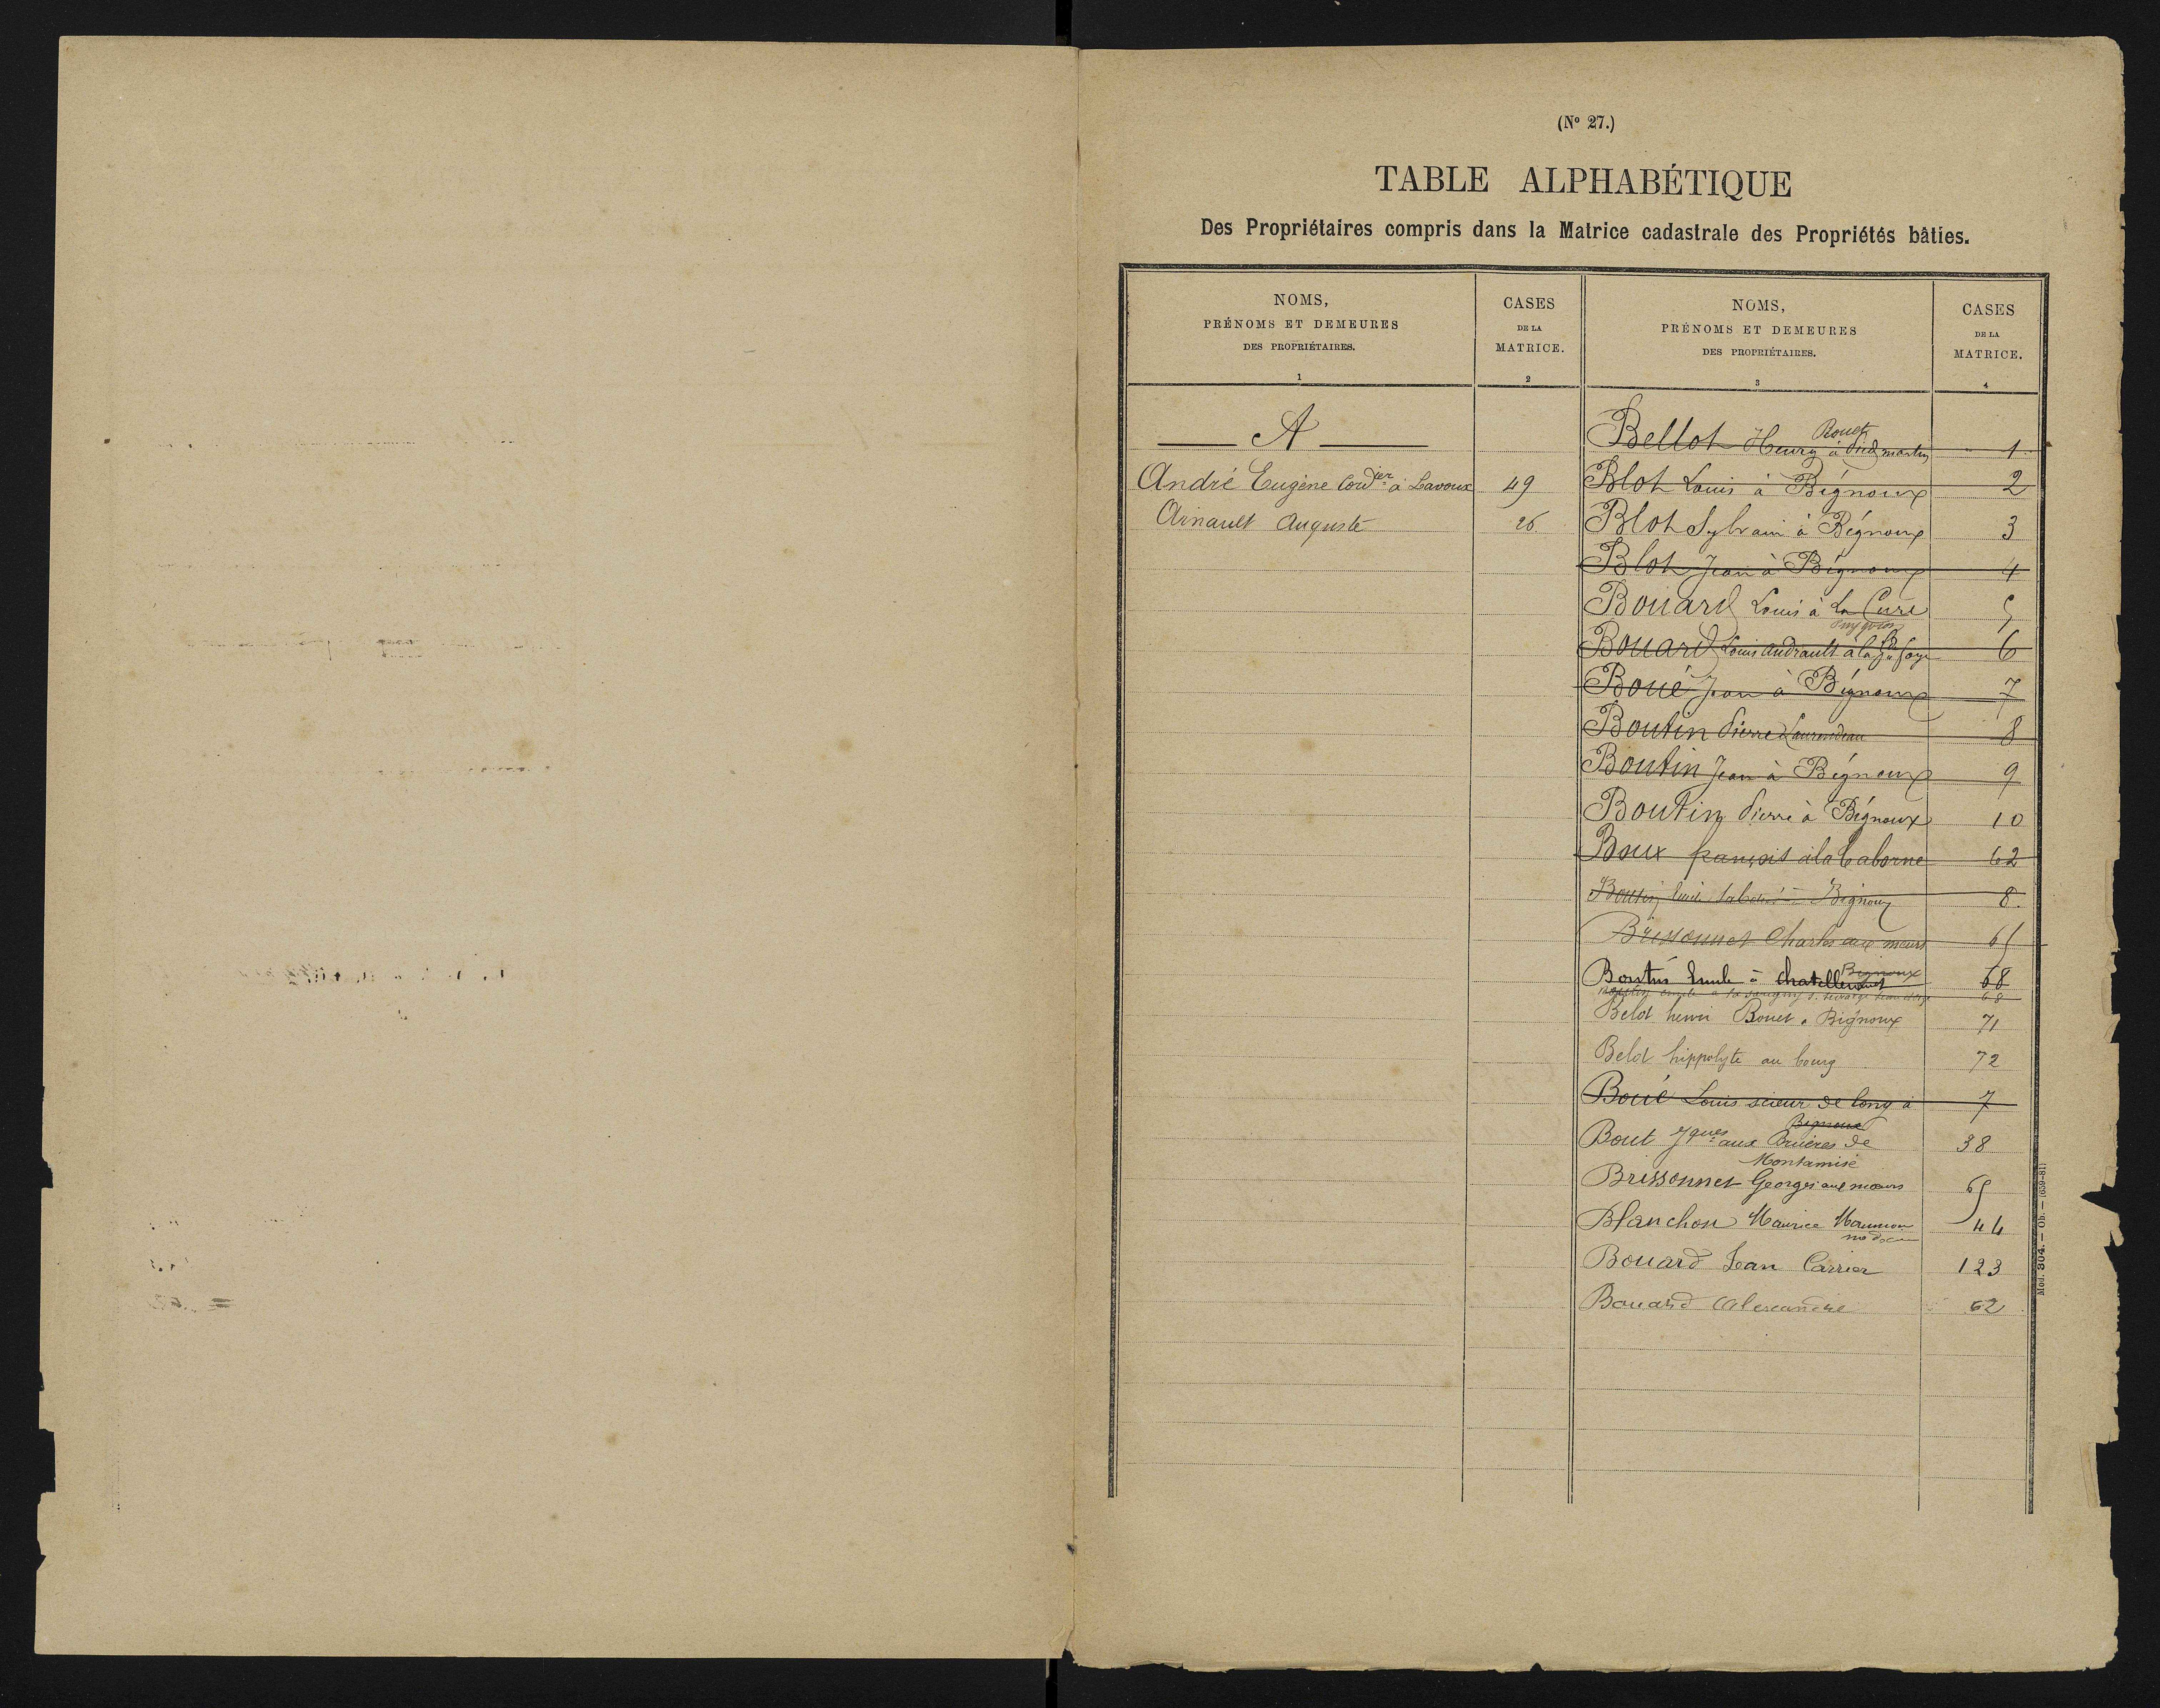 (Nº 27.)
TABLE ALPHABÉTIQUE
Des Propriétaires compris dans la Matrice cadastrale des Propriétés bâties.
NOMS,
PRÉNOMS ET DEMEURES
DES PROPRIÉTAIRES.
1
CASES
DE LA
MATRICE.
2
A
André Eugène Cordier à Lavoux 49
Ainault Auguste 26.
NOMS,
PRÉNOMS ET DEMEURES
DES PROPRIÉTAIRES.
3
CASES
DE LA
MATRICE.
4
Rouet
Bellot Henry à Pied martin 1
Blot Louis à Bignoux 2
Blot Sylvain à Bignoux 3
Blot Jean à Bignoux 4
Bouard Louis à La Cure 5
Bouard Louis Andrault à la faye 6
Boué Jean à Bignoux 7
Boutin Pierre Laurendeau 8
Boutin Jean à Bignoux 9
Boutin Pierre à Bignoux 10
Boux françois à la Caborne 62
Boutin Bignoux 8.
Brissonnet Charles aux meurs 65
Bignoux
Boutin Emile à Chatellerault 68
68
Belot henri Bouet à Bignoux 71
Belot hippolyte au bourg 72
Boué Louis scieur de long à 7
Bignoux
Bout Jques aux Bruères de 38
Montamisé
Brissonnet Georges aux meurs 65
Blanchon Maurice 44
Bouard Jean Carrier 123
Bouard Alexandre 62
Mod. 304. — Ob. — (639-81)